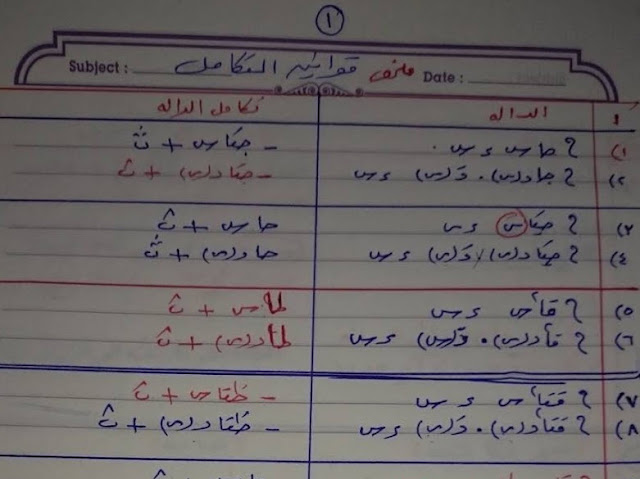 ١
Subject : قوانين التكامل Date :
م الداله تكامل الداله
١) ∫ جاس ءس - جتاس + ث
٢) ∫ جاد(س) . دَ(س) ءس - جتاد(س) + ث
٣) ∫ جتاس ءس جاس + ث
٤) ∫ جتاد(س) . دَ(س) ءس جاد(س) + ث
٥) ∫ قا²س ءس ظاس + ث
٦) ∫ قا²د(س) . دَ(س) ءس ظاد(س) + ث
٧) ∫ قتا²س ءس - ظتاس + ث
٨) ∫ قتا²د(س) . دَ(س) ءس - ظتاد(س) + ث